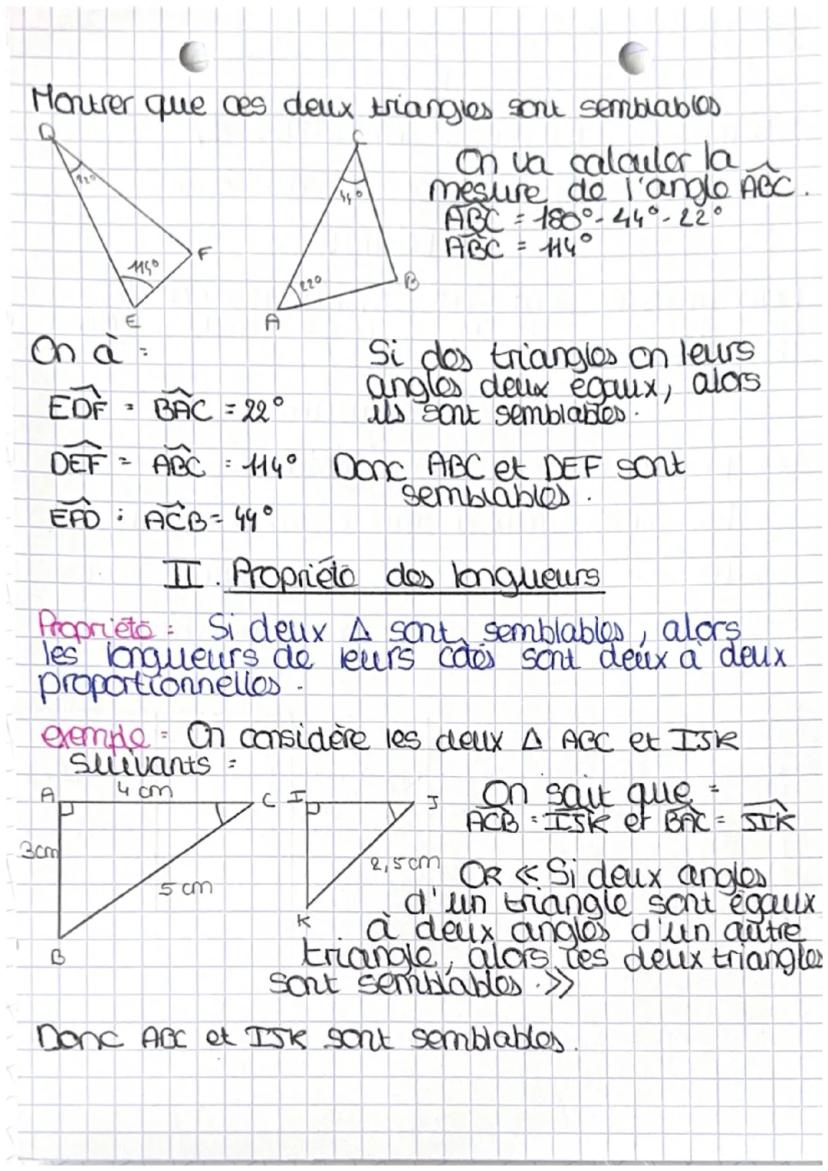 Montrer que ces deux triangles sont semblables
D
22°
114°
F
E
C
44°
22°
B
A
On va calculer la
mesure de l'angle ABC.
ABC = 180° - 44° - 22°
ABC = 114°
On à :
EDF = BAC = 22°
DEF = ABC = 114°
EFD : ACB = 44°
Si des triangles on leurs
angles deux égaux, alors
ils sont semblables.
Donc ABC et DEF sont
semblables.
II. Propriété des longueurs
Propriété : Si deux Δ sont semblables, alors
les longueurs de leurs côtés sont deux à deux
proportionnelles.
exemple : On considère les deux Δ ABC et IJK
suivants :
A
4 cm
C
3cm
5 cm
B
I
J
2,5cm
K
On sait que :
ACB = IJK et BAC = JIK
OR << Si deux angles
d'un triangle sont égaux
à deux angles d'un autre
triangle, alors les deux triangles
sont semblables. >>
Donc ABC et IJK sont semblables.